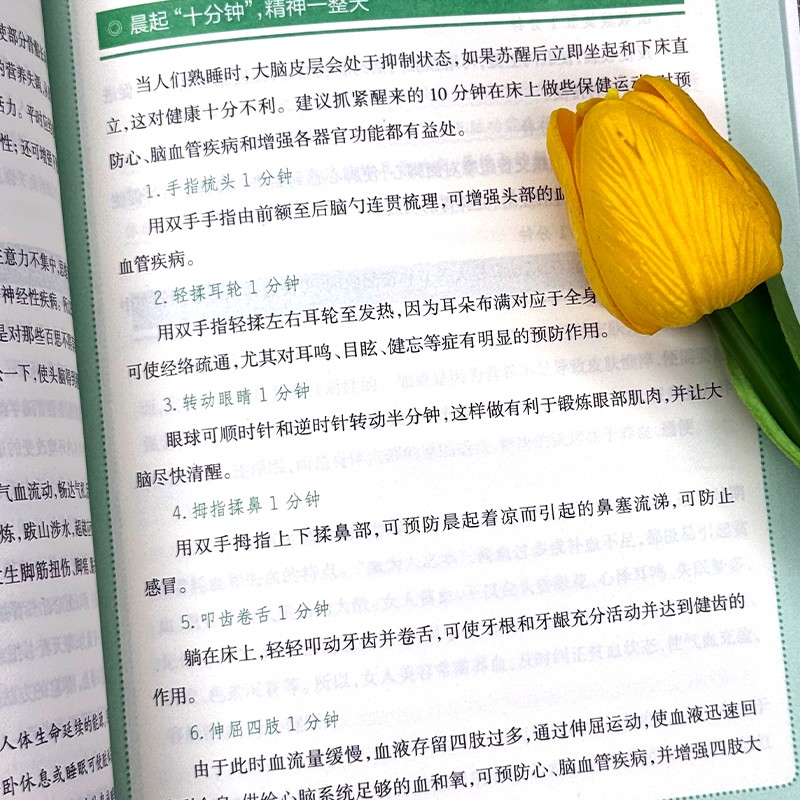 使部分骨骼
的营养失调
活力。平时
性；还可增
注意力不集中，思
神经性疾病。
是对那些百思不
一下，使头脑得到
气血流动，畅达气机
炼，跋山涉水，超越
生脚筋扭伤、脚痛
人体生命延续的能源
卧休息或睡眠可使
◎ 晨起“十分钟”，精神一整天
当人们熟睡时，大脑皮层会处于抑制状态，如果苏醒后立即坐起和下床直
立，这对健康十分不利。建议抓紧醒来的 10 分钟在床上做些保健运动，对预
防心、脑血管疾病和增强各器官功能都有益处。
1. 手指梳头 1 分钟
用双手手指由前额至后脑勺连贯梳理，可增强头部的血
血管疾病。
2. 轻揉耳轮 1 分钟
用双手指轻揉左右耳轮至发热，因为耳朵布满对应于全身
可使经络疏通，尤其对耳鸣、目眩、健忘等症有明显的预防作用。
3. 转动眼睛 1 分钟
眼球可顺时针和逆时针转动半分钟，这样做有利于锻炼眼部肌肉，并让大
脑尽快清醒。
4. 拇指揉鼻 1 分钟
用双手拇指上下揉鼻部，可预防晨起着凉而引起的鼻塞流涕，可防止
感冒。
5. 叩齿卷舌 1 分钟
躺在床上，轻轻叩动牙齿并卷舌，可使牙根和牙龈充分活动并达到健齿的
作用。
6. 伸屈四肢 1 分钟
由于此时血流量缓慢，血液存留四肢过多，通过伸屈运动，使血液迅速回
供给心脑系统足够的血和氧，可预防心、脑血管疾病，并增强四肢大